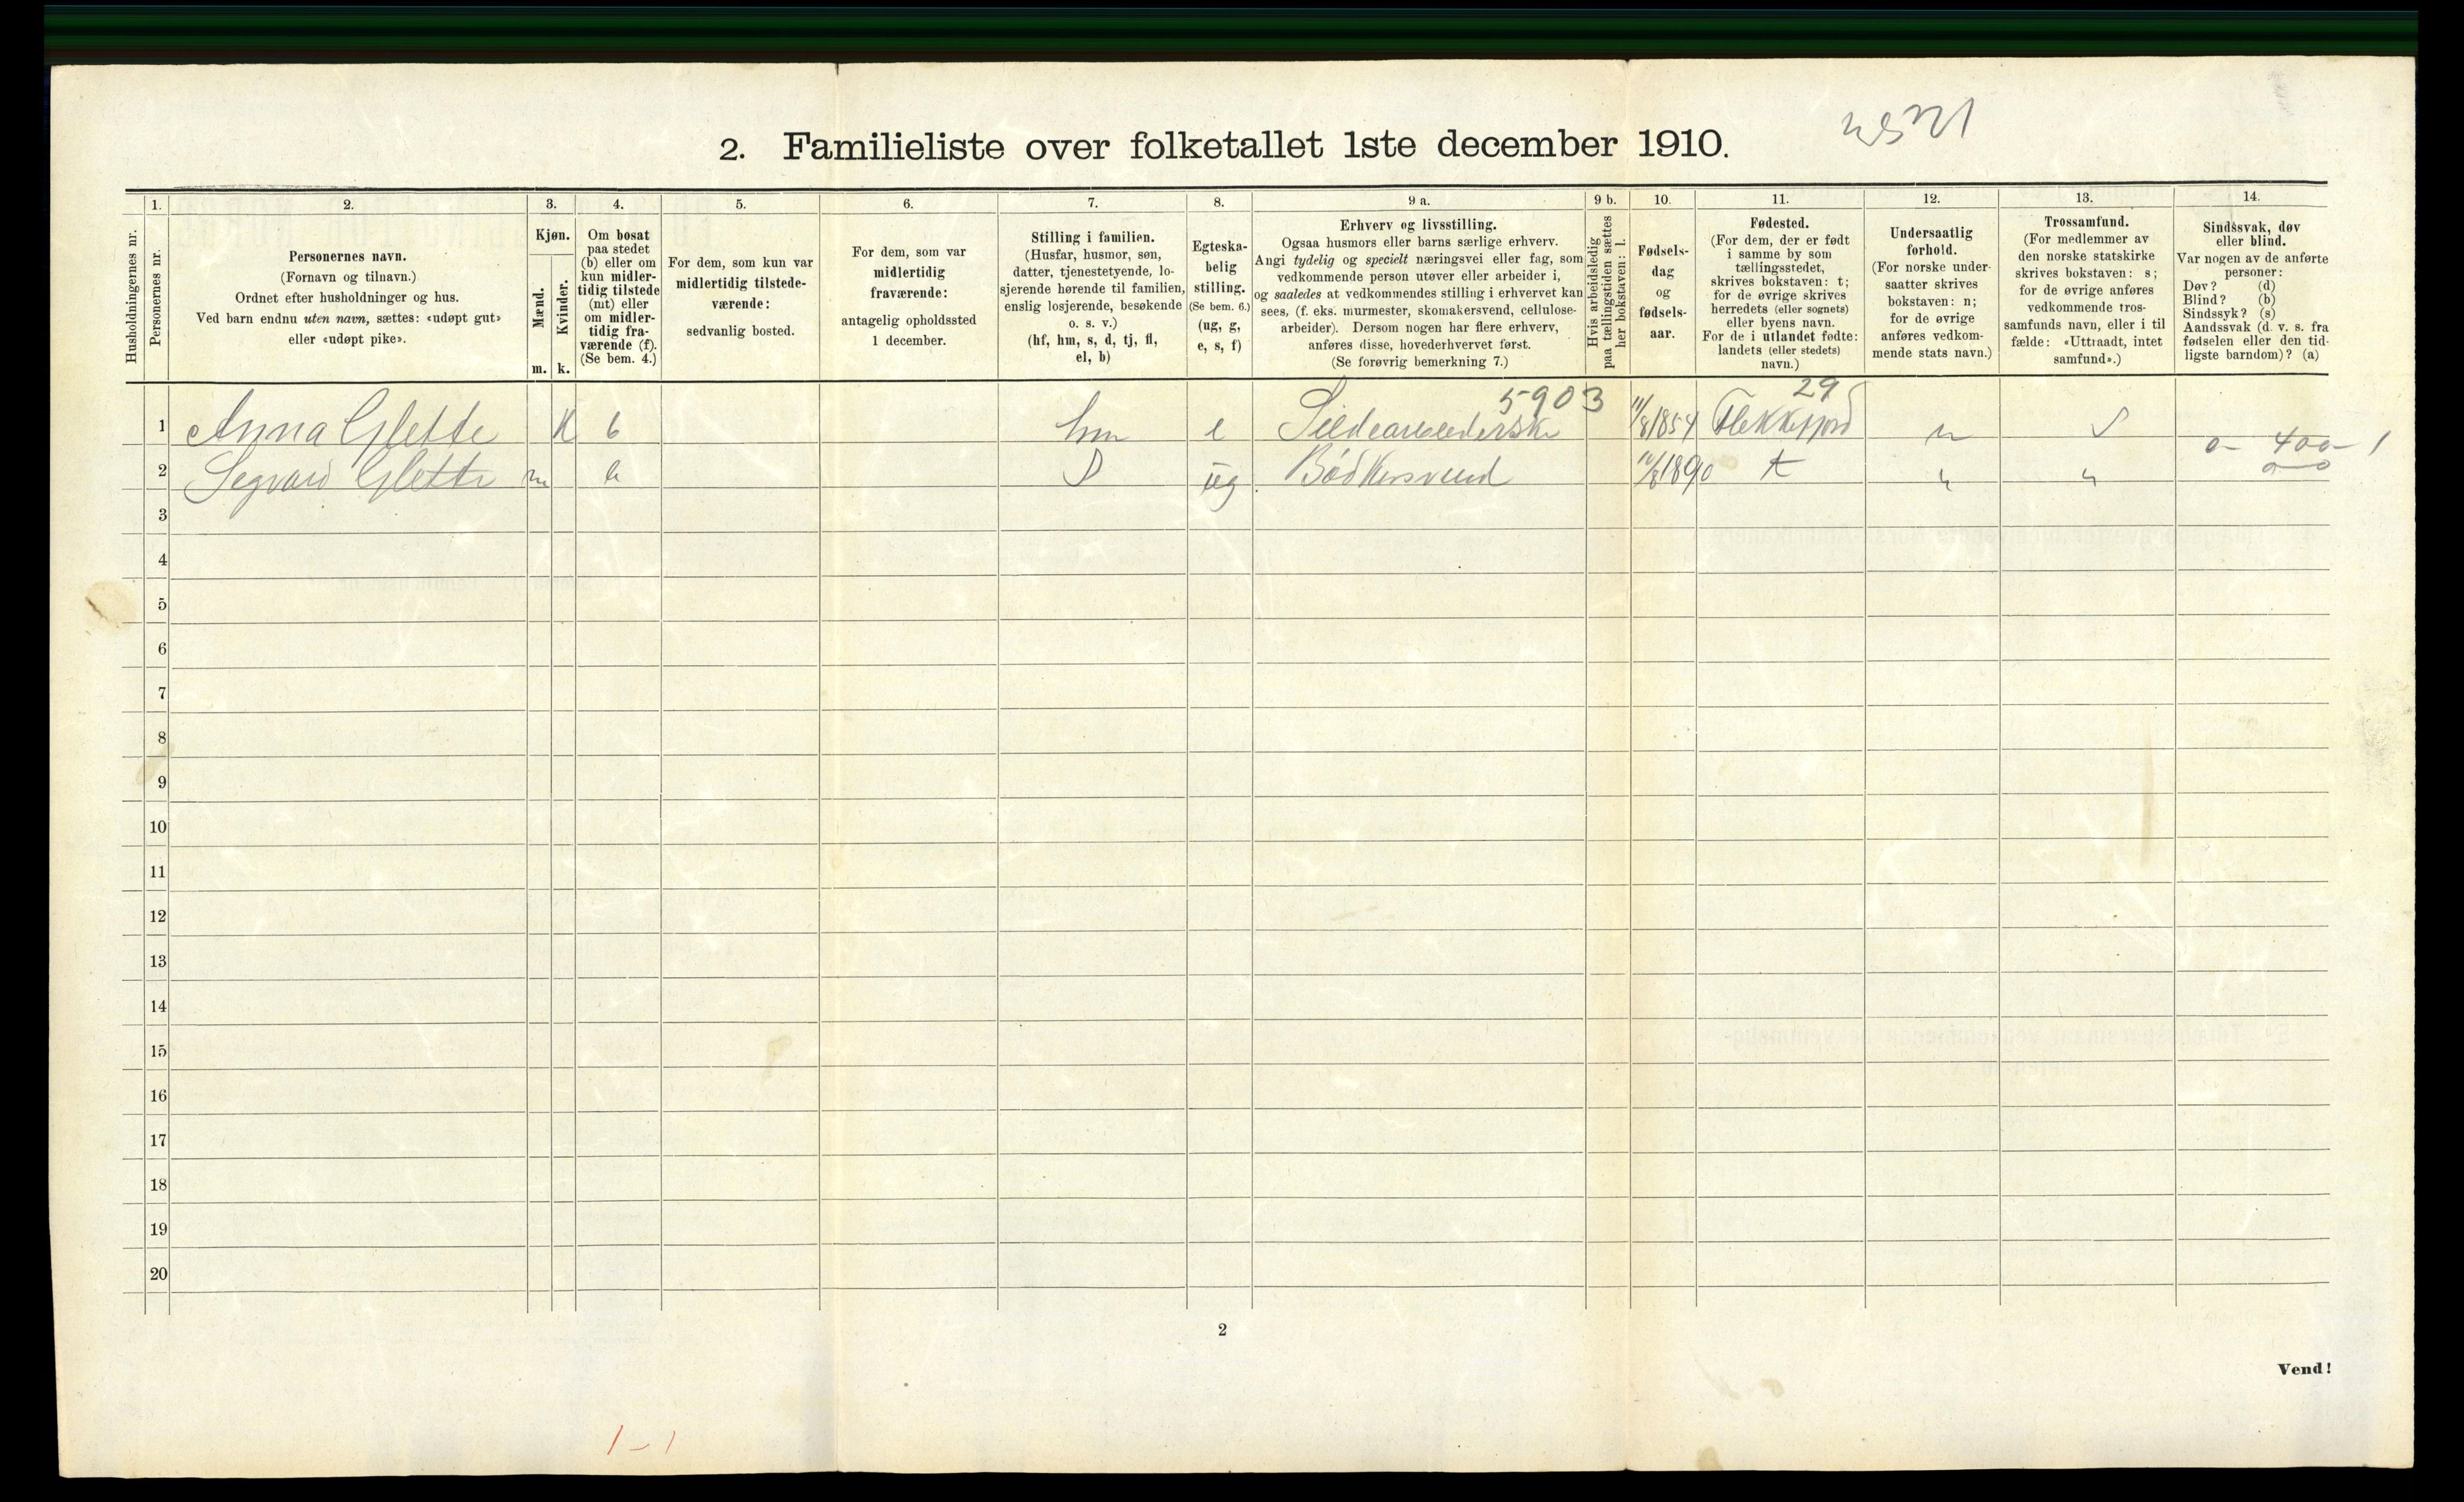 2. Familieliste over folketallet 1ste december 1910.
Husholdningernes nr.
1.
Personernes nr.
2.
Personernes navn.
(Fornavn og tilnavn.)
Ordnet efter husholdninger og hus.
Ved barn endnu uten navn, sættes: «udøpt gut»
eller «udøpt pike».
3.
Kjøn.
Mænd.
Kvinder.
m. k.
4.
Om bosat
paa stedet
(b) eller om
kun midler-
tidig tilstede
(mt) eller
om midler-
tidig fra-
værende (f).
(Se bem. 4.)
5.
For dem, som kun var
midlertidig tilstede-
værende:
sedvanlig bosted.
6.
For dem, som var
midlertidig
fraværende:
antagelig opholdssted
1 december.
7.
Stilling i familien.
(Husfar, husmor, søn,
datter, tjenestetyende, lo-
sjerende hørende til familien,
enslig losjerende, besøkende
o. s. v.)
(hf, hm, s, d, tj, fl,
el, b)
8.
Egteska-
belig
stilling.
(Se bem. 6.)
(ug, g,
e, s, f)
9 a.
Erhverv og livsstilling.
Ogsaa husmors eller barns særlige erhverv.
Angi tydelig og specielt næringsvei eller fag, som
vedkommende person utøver eller arbeider i,
og saaledes at vedkommendes stilling i erhvervet kan
sees, (f. eks. murmester, skomakersvend, cellulose-
arbeider). Dersom nogen har flere erhverv,
anføres disse, hovederhvervet først.
(Se forøvrig bemerkning 7.)
9 b.
Hvis arbeidsledig
paa tællingstiden sættes
her bokstaven: l.
10.
Fødsels-
dag
og
fødsels-
aar.
11.
Fødested.
(For dem, der er født
i samme by som
tællingsstedet,
skrives bokstaven: t;
for de øvrige skrives
herredets (eller sognets)
eller byens navn.
For de i utlandet fødte:
landets (eller stedets)
navn.)
12.
Undersaatlig
forhold.
(For norske under-
saatter skrives
bokstaven: n;
for de øvrige
anføres vedkom-
mende stats navn.)
13.
Trossamfund.
(For medlemmer av
den norske statskirke
skrives bokstaven: s;
for de øvrige anføres
vedkommende tros-
samfunds navn, eller i til
fælde: «Uttraadt, intet
samfund».)
14.
Sindssvak, døv
eller blind.
Var nogen av de anførte
personer:
Døv? (d)
Blind? (b)
Sindssyk? (s)
Aandssvak (d. v. s. fra
fødselen eller den tid-
ligste barndom)? (a)
5903 29
1 Anna Glette K b hm e Sildearbeiderske 11/8 1854 Flekkefjord n s
0 - 400 - 1
2 Segvard Glette m b s ug Bödkersvend 1890 t
0-0
3
4
5
6
7
8
9
10
11
12
13
14
15
16
17
18
19
20
2
Vend!
1-1